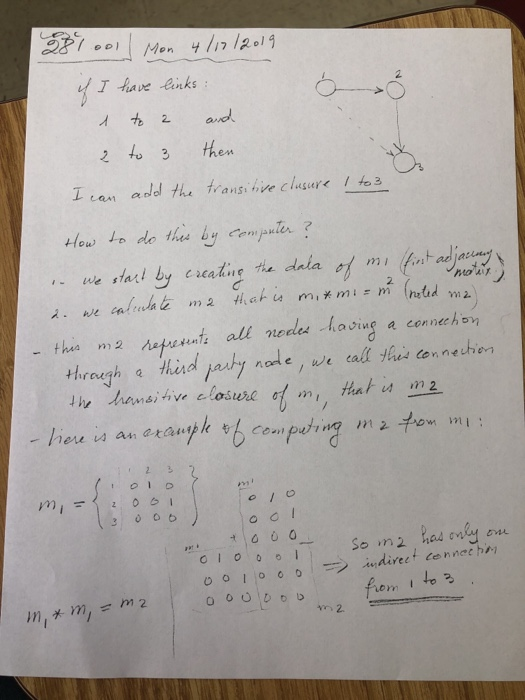 281 001 | Mon 4/17/2019
if I have links :
1 to 2 and
2 to 3 then
1 2
3
I can add the transitive closure 1 to 3
How to do this by computer ?
1- we start by creating the data of m1 (first adjacency matrix)
2. we calculate m2 that is m1 * m1 = m² (noted m2)
- this m2 represents all nodes having a connection
through a third party node, we call this connection
the transitive closure of m1, that is m2
- here is an example of computing m2 from m1 :
1 2 3
1 0 1 0
m1 = { 2 0 0 1 }
3 0 0 0
m1
0 1 0
0 0 1
m1 * 0 0 0
0 1 0 0 0 1
0 0 1 0 0 0
0 0 0 0 0 0
m2
m1 * m1 = m2
⇒ So m2 has only one
indirect connection
from 1 to 3 .